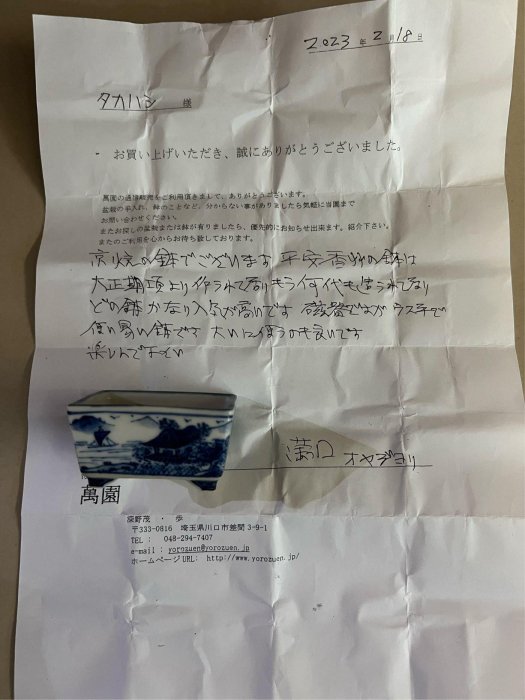 2023年2月18日
タカハシ 様
- お買い上げいただき、誠にありがとうございました。
萬園の通信販売をご利用頂きまして、ありがとうございます。
盆栽の手入れ、鉢のことなど、分からない事がありましたら気軽に当園まで
お問い合わせください。
またお探しの盆栽または鉢が有りましたら、優先的にお知らせ出来ます。紹介下さい。
またのご利用を心からお待ち致しております。
京焼の鉢でございます 平安香山の鉢は
大正期頃より作られて居りもう何代も造られており
どの鉢かなり人気が高いです 磁器ですが うす手で
使い易い鉢です 大いに使うのも良いです
楽しんで下さい
溝口 オヤジヨリ
萬園
深野茂 ・ 歩
〒333-0816 埼玉県川口市差間 3-9-1
TEL : 048-294-7407
e-mail : yorozuen@yorozuen.jp
ホームページ URL: http://www.yorozuen.jp/